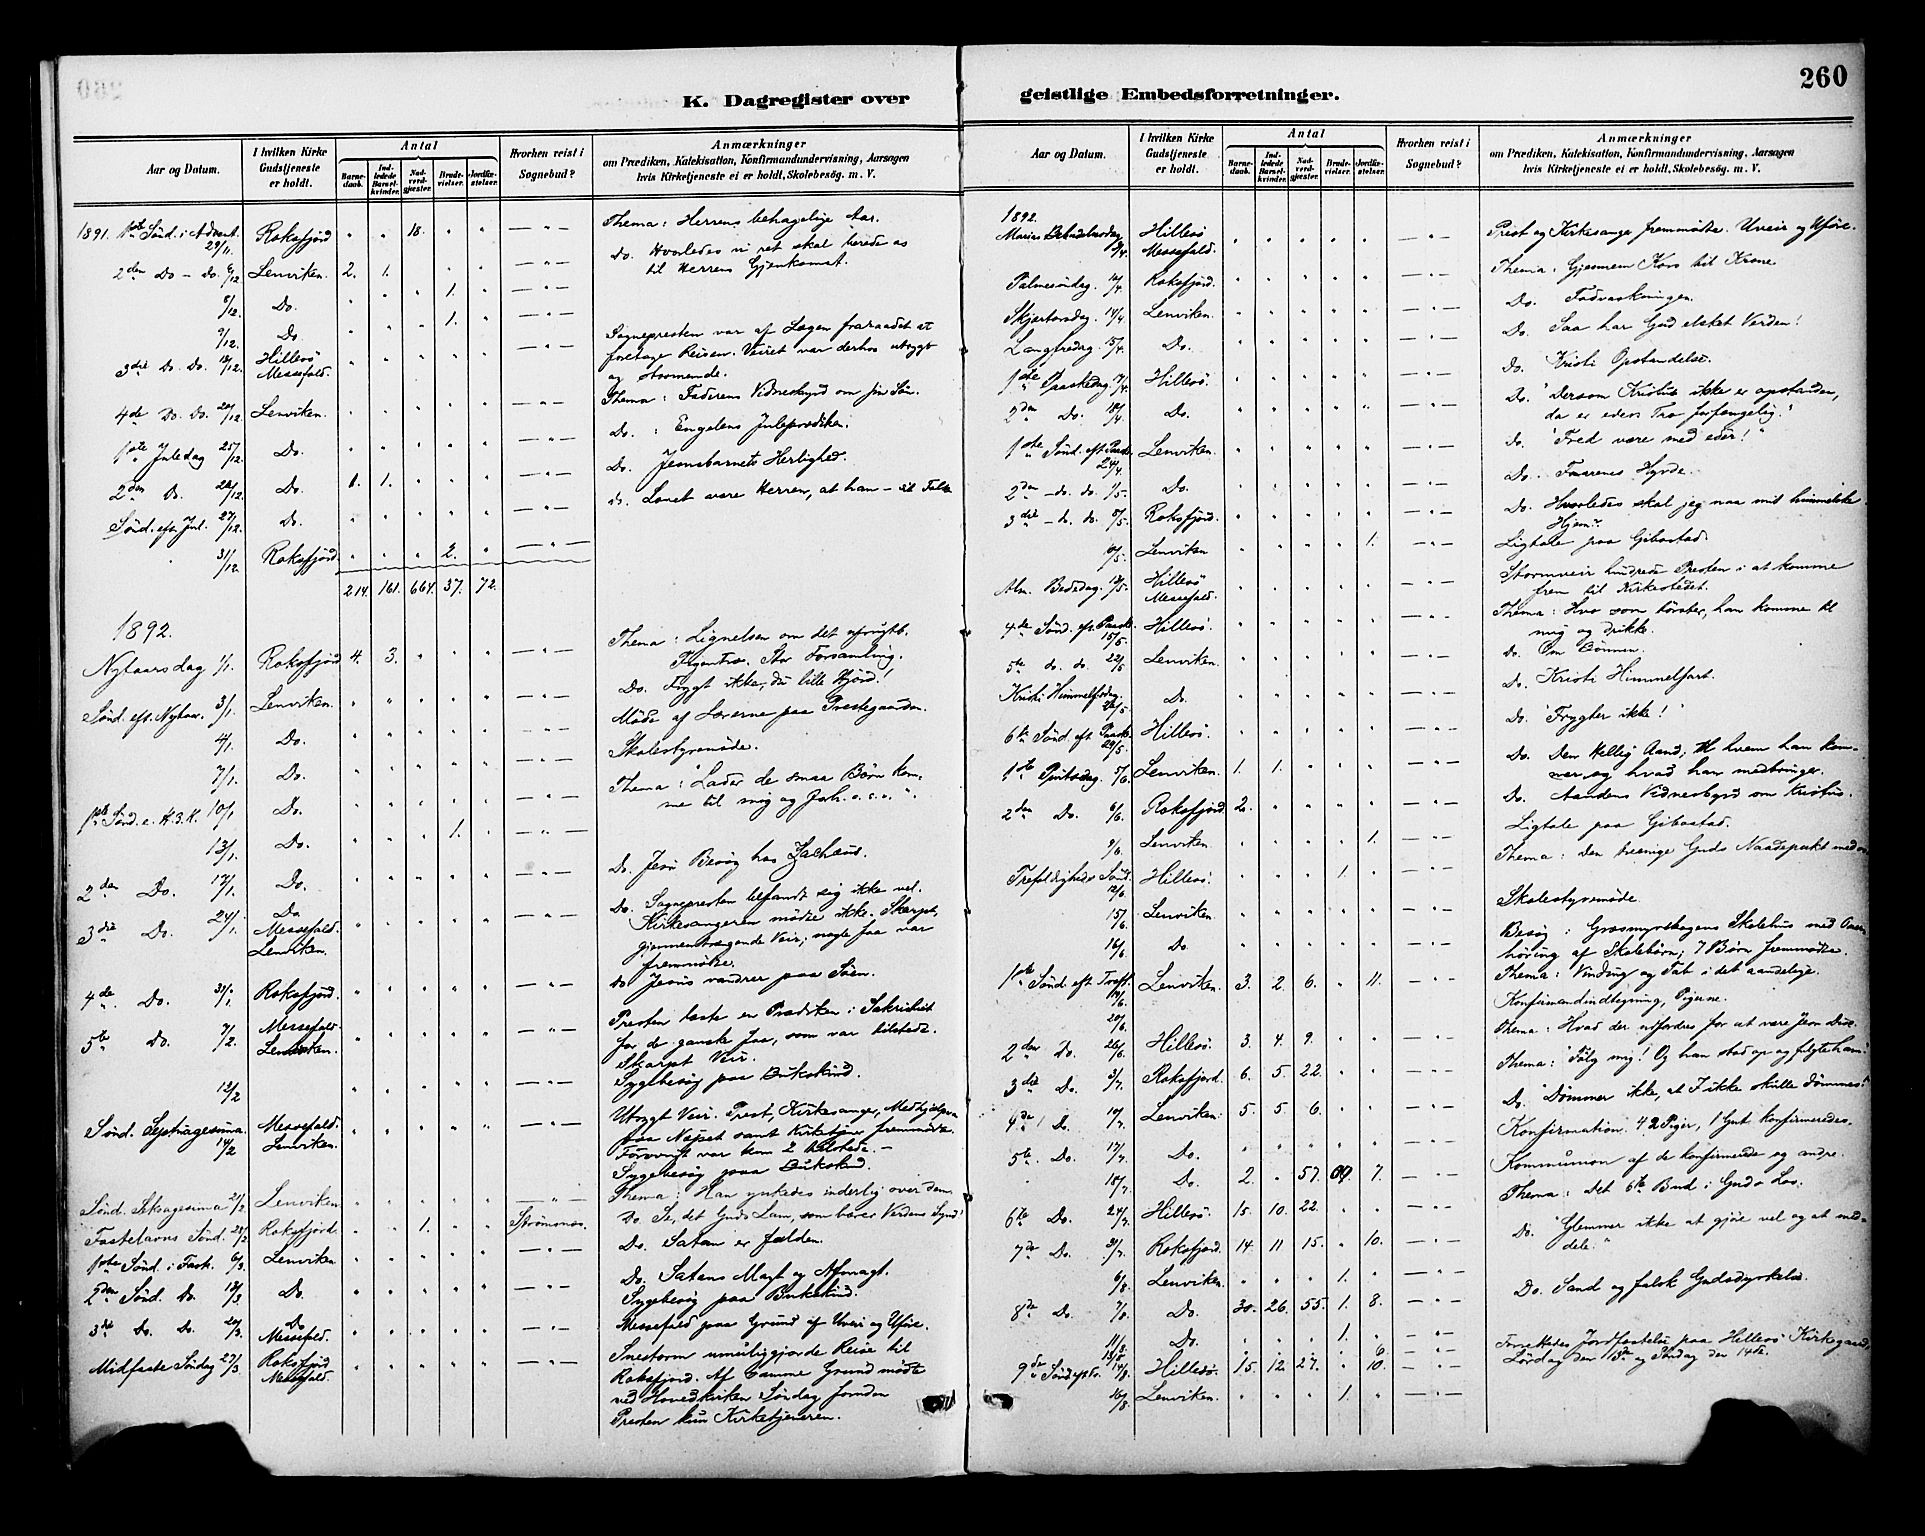 260
K. Dagregister over geistlige Embedsforretninger.
Aar og Datum. | I hvilken Kirke Gudstjeneste er holdt. | Antal | Barnedaab. | Indledede Barselkvinder. | Nadverdgjester. | Brudevielser. | Jordfæstelser. | Hvorhen reist i Sognebud? | Anmærkninger om Prædiken, Katekisation, Konfirmandundervisning, Aarsagen hvis Kirketjeneste ei er holdt, Skolebesøg. m. V.
1891. 1ste Sønd. i Advent 29/11. Roksfjord " " 18. " " — " — Thema: Herrens behagelige Aar.
2den Do - Do. 6/12 Lenviken. 2. 1. " " " — " — Do. Hvorledes vi ret skal berede os
til Herrens Gjenkomst.
8/12. Do. " " " 1. " — " —
9/12. Do " " " 1. " — " —
3die Do. Do. 13/12. Hillesö Messefald. " " " " " — " — Sognepresten var af Lægen fraraadet at
foretage Reisen. Veiret var derhos utrygt
og stormende.
4de Do. Do. 20/12. Lenviken. " " " " " — " — Thema: Faderens Vidnesbyrd om sin Søn.
1ste Juledag 25/12. Do. " " " " " — " — Do. : Engelens Juleprædiken.
2den Do. 26/12. Do. 1. 1. " " " — " — Do. Jesusbarnets Herlighed.
Sönd. eft. Jul. 27/12. Do. " " " " " — " — Do. Lovet være Herren, at han – til Folk
31/12. Roksfjord. " " " 2. " — " —
214. 161. 664. 37. 72.
1892.
Nytaarsdag 1/1. Roksfjord 4. 3. " " " — " — Thema: Lignelsen om det ufrugtb.
Figentræ. Stor Forsamling.
Sönd. eft. Nytaar. 3/1. Lenviken. " " " " " — " — Do. Frygt ikke, du lille Hjord!
4/1. Do. " " " " " — " — Möde af Lærerne paa Prestegaarden.
7/1. Do. " " " " " — " — Skolestyremöde.
1ste Sönd. e. H. 3. K. 10/1. Do. " " " " " — " — Thema: "Lader de smaa Börn kom-
me til mig og forh. o. s. v.".
13/1. Do. " " " 1. " — " —
2den Do. 17/1. Do. " " " " " — " — Do. Jesu Besög hos Zachæus.
3die Do. 24/1. Do. Messefald. Lenviken. " " " " " — " — Do. Sognepresten befandt sig ikke vel.
Kirkesangeren mödte ikke. Skarpt,
gjennemtrængende Veir; nogle faa var
fremmödte.
4de Do. 31/1. Roksfjord. " " " " " — " — Do Jesus vandrer paa Söen.
5te Do. 7/2. Messefald. Lenviken. " " " " " — " — Presten læste en Prædiken i Sakristiet
for de ganske faa, som var tilstede.
Skarpt Veir.
12/2 " " " " " — " — Sygebesög paa Bukskind.
Sönd. Septuagesima. 14/2 Messefald. Lenviken. " " " " " — " — Utrygt Veir. Prest, Kirkesanger, Medhjelpere
paa Næset samt Kirketjener fremmödte.
Forövrigt var kun 2 tilstede. –
Sygebesög paa Bukskind.
Sönd. Seksagesima 21/2. Lenviken " " " " " — " — Thema: Han ynkedes inderlig over dem.
Fastelavns Sönd. 28/2. Roksfjord. " " 1. " " Strömsnes. Do. Se, det Guds Lam, som bærer Verdens Synd!
1ste Sönd. i Fast. 6/3. Lenviken " " " " " — " — Do. Satan er falden.
2den Sönd. Do. 13/3. Do. " " " " " — " — Do. Satans Magt og Afmagt.
Sygebesög paa Bukskind.
3die Do. Do. 20/3. Do Messefald. " " " " " — " — Messefald paa Grund af Uveir og Uföre.
Midfaste Söndag 27/3. Roksfjord Messefald. " " " " " — " — Snestorm umuliggjorde Reise til
Roksfjord. Af samme Grund mödte
ved Hovedkirken Söndag foruden
Presten kun Kirketjeneren.
Aar og Datum. | I hvilken Kirke Gudstjeneste er holdt. | Antal | Barnedaab. | Indledede Barselkvinder. | Nadverdgjester. | Brudevielser. | Jordfæstelser. | Hvorhen reist i Sognebud? | Anmærkninger om Prædiken, Katekisation, Konfirmandundervisning, Aarsagen hvis Kirketjeneste ei er holdt, Skolebesøg. m. V.
1892.
Mariæ Bebudelsesdag 3/4. Hillesö Messefald. " " " " " — " — Prest og Kirkesanger fremmödte. Uveir og Uföre.
Palmesöndag. 10/4. Roksfjord. " " " " " — " — Thema: Gjennem Kors til Krone
Skjærtorsdag. 14/4. Lenviken. " " " " " — " — Do. Fodvaskningen.
Langfredag. 15/4. Do. " " " " " — " — Do. Saa har Gud elsket Verden!
1ste Paaskedag. 17/4. Hillesö. " " " " " — " — Do. Kristi Opstandelse.
2den Do. 18/4. Do. " " " " " — " — Do. "Dersom Kristus ikke er opstanden,
da er eders Tro forfængelig."
1ste Sönd. eft. Paaske 24/4. Lenviken. " " " " " — " — Do. "Fred være med eder!"
2den – do. do. 1/5. Do. " " " " " — " — Do. Faarenes Hyrde.
3die – do. do. 8/5. Roksfjord. " " " " " — " — Do. Hvorledes skal jeg naa mit himmelske
Hjem?
10/5. Lenviken " " " " 1. — " — Ligtale paa Gibostad.
Alm. Bededag. 13/5. Hillesö Messefald. " " " " " — " — Stormveir hindrede Presten i at komme
frem til Kirkestedet.
4de Sönd. eft. Paaske 15/5. Hillesö. " " " " " — " — Thema: Hvo som törster, han komme til
mig og drikke.
5te do. do. 22/5 Lenviken. " " " " " — " — Do. Om Bönnen.
Kristi Himmelfartsdag. 26/5. Do. " " " " " — " — Do. Kristi Himmelfart.
6te Sönd. eft. Paaske 29/5. Hillesö. " " " " " — " — Do. "Frygter ikke!"
1ste Pintsedag. 5/6. Lenviken. 1. 1. " " " — " — Do. Den Hellig Aand; til hvem han kom-
mer og hvad han medbringer.
2den Do. 6/6. Roksfjord 2. " " " " — " — Do. Aandens Vidnesbyrd om Kristus.
9/6. Lenviken " " " " 1. — " — Ligtale paa Gibostad.
Trefoldigheds Sönd. 12/6. Hillesö. " " " 1. " — " — Thema: Den treenige Guds Naadepakt med os
15/6. Lenviken. " " " " " — " — Skolestyremöde.
16/6. Do. " " " " " — " — Besög: Grasmyrskogens Skolehus med Over-
höring af Skolebörn; 7 Börn fremmödte.
1ste Sönd. eft. Tref. 19/6. Lenviken. 3. 2. 6. " 11. — " — Thema: Vinding og Tab i det aandelige.
20/6. Konfirmandindtegning, Pigerne.
2den Do. 26/6. Hillesö. 3. 4. 9. " " — " — Thema: Hvad der udfordres for at være Jesu Disc.
3die Do. 3/7. Roksfjord. 6. 5. 22. " " — " — Thema: "Fölg mig! Og han stod op og fulgte ham."
4de Do. 10/7. Lenviken. 5. 5. 6. " " — " — Do. "Dömmer ikke, at I ikke skulle dömmes!
5te Do. 17/7. Do. " " " " " — " — Konfirmation. 42 Piger, 1 Gut konfirmeredes.
18/7. Do. 2. " 57. 7. — " — Kommunion af de konfirmerede og andre.
6te Do. 24/7. Hillesö. 15. 10. 22. " " — " — Thema: Det 5te Bud i Guds Lov.
7de Do. 31/7. Roksfjord. 14. 11 15. " 10. — " — Do. "Glemmer ikke at gjöre vel og at med-
dele."
6/8. Lenviken. " " " 1. " — " —
8de Do. 7/8. Do. 30. 26. 55. 1. 8. — " — Do. Sand og falsk Gudsdyrkelse.
11/8. Do. " " " 1. " — " —
13/8 " " " " 6. — " — Forrettedes Jordfæstelse paa Hillesö Kirkegaard,
9de Sönd. eft. Tr. 14/8. Hillesö. 15. 12. 27. " 10. — " — Lördag den 13de og Söndag den 14de.
16/8. Lenviken. " " " 1. " — " —